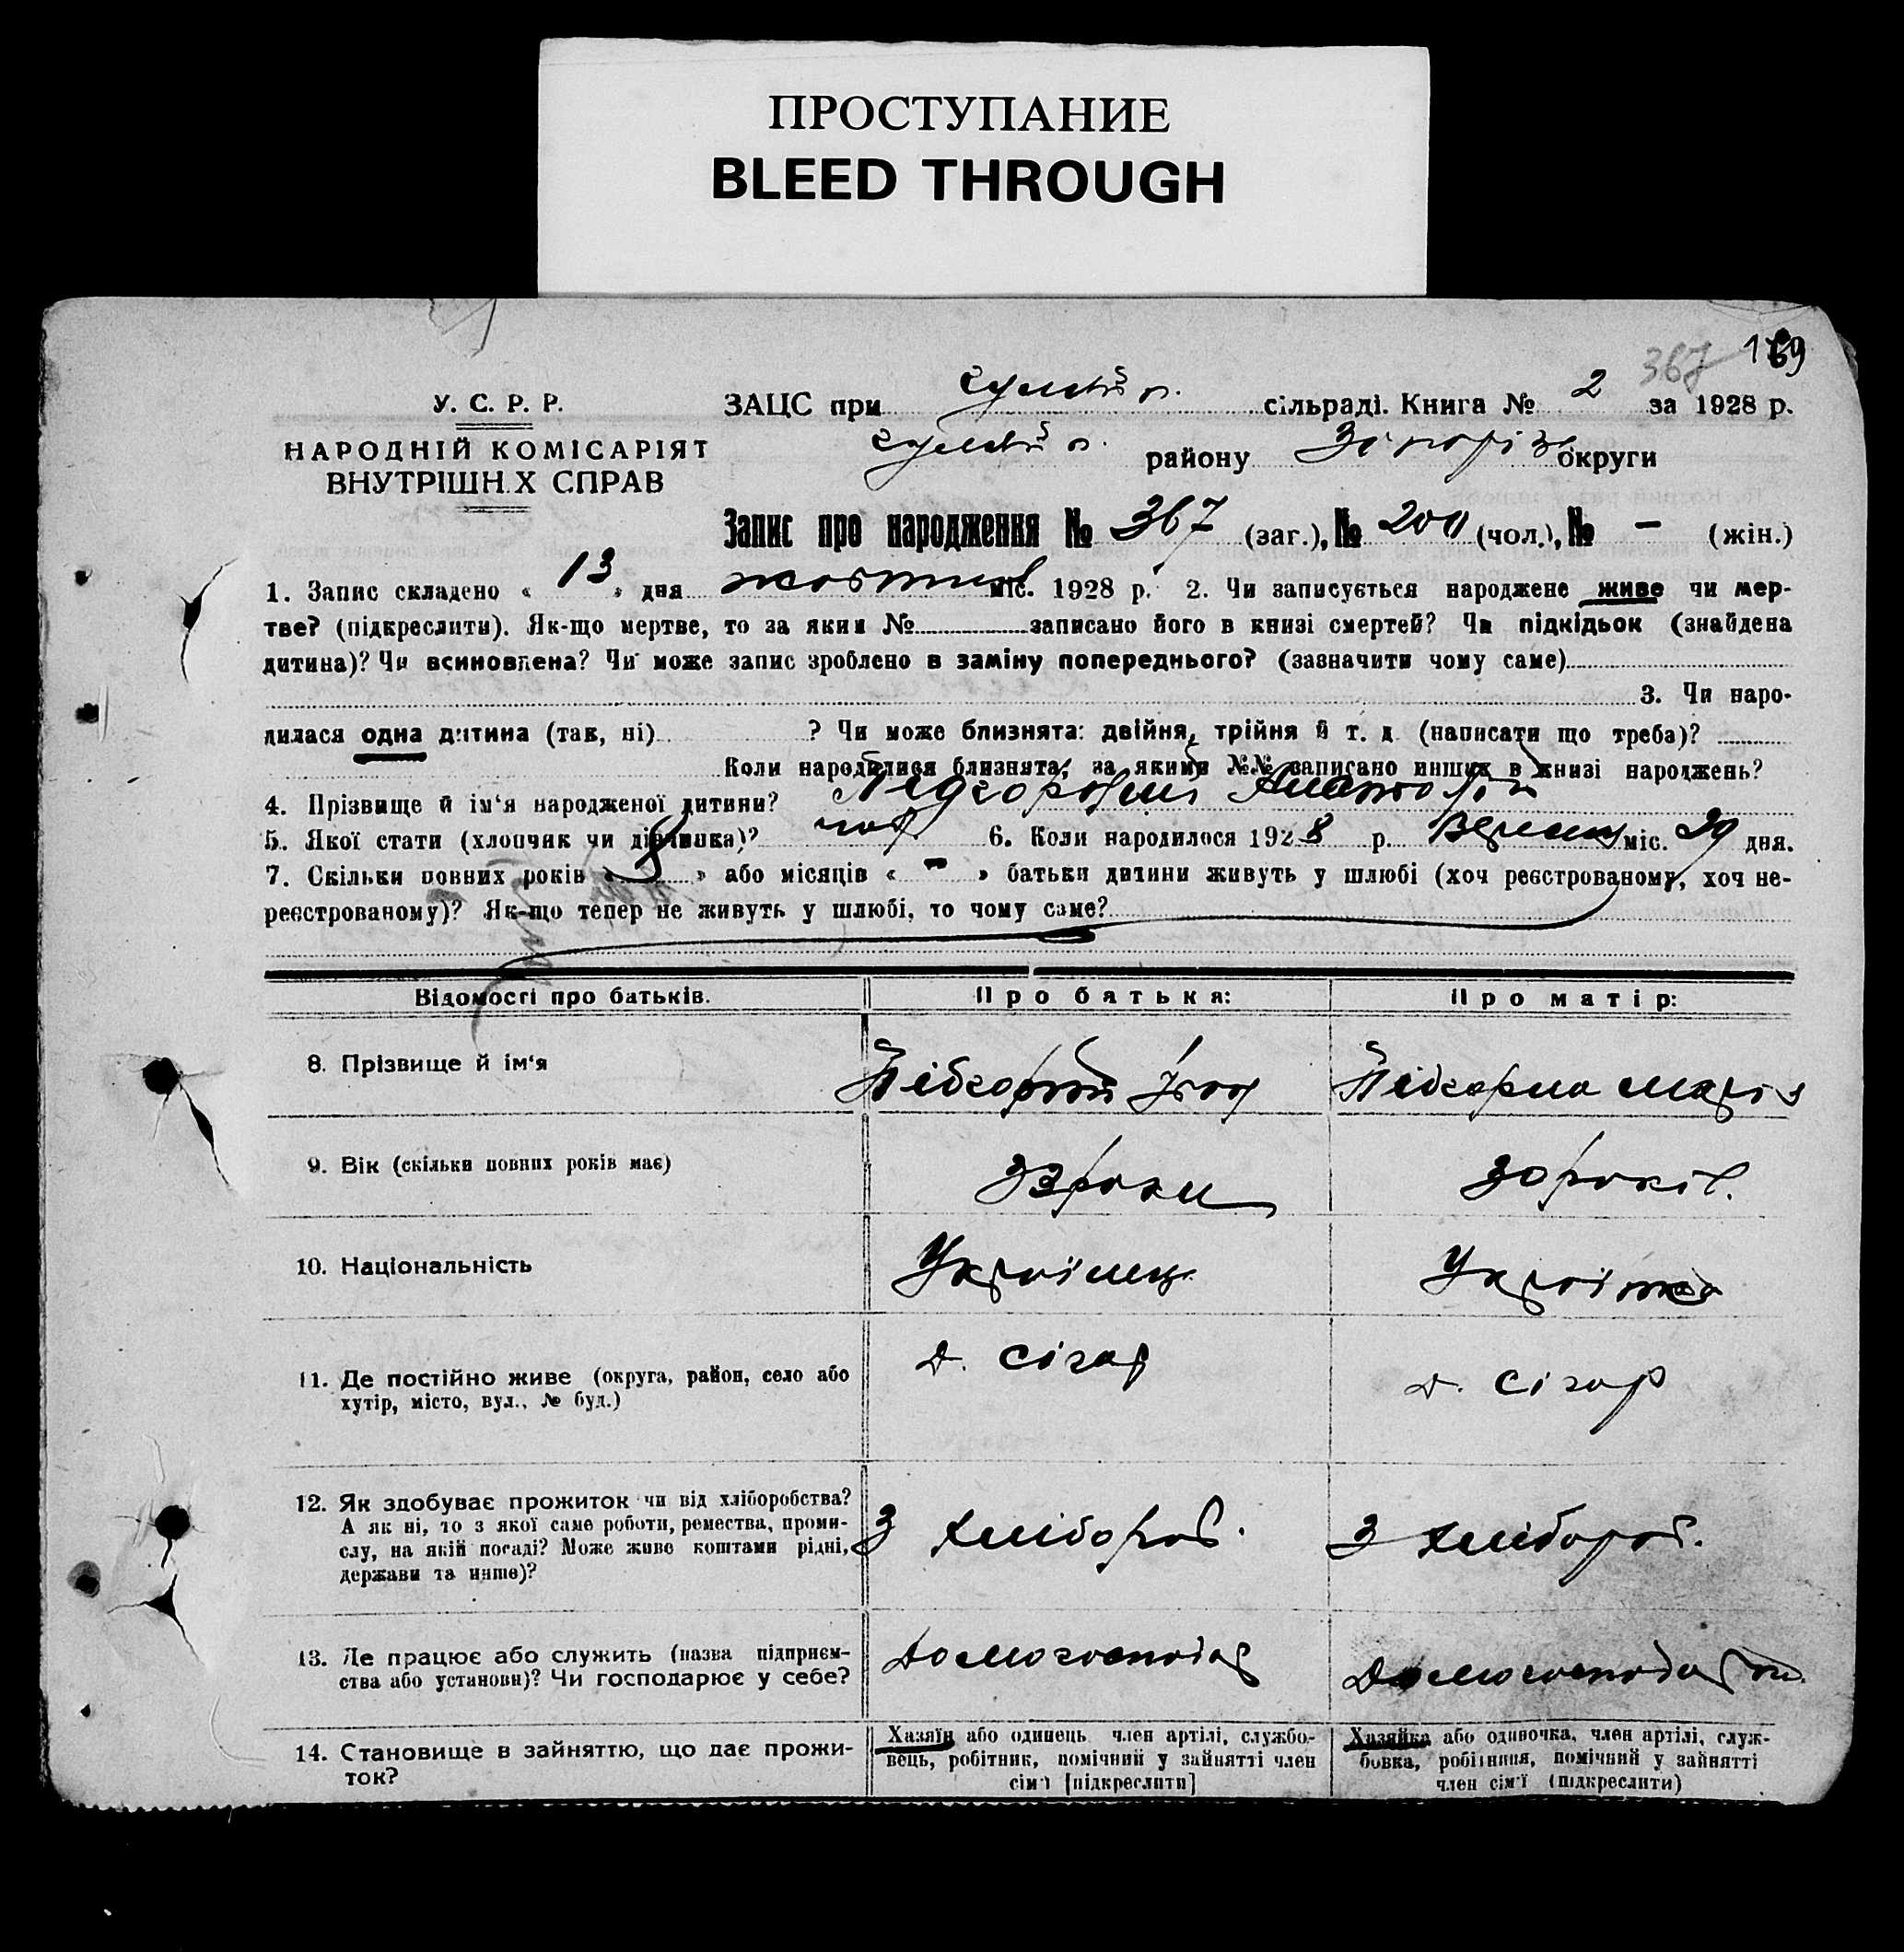 ПРОСТУПАНИЕ
BLEED THROUGH
367 169
У. С. Р. Р.
НАРОДНІЙ КОМІСАРІЯТ
ВНУТРІШН.Х СПРАВ
ЗАЦС при сільраді. Книга № 2 за 1928 р.
району Запоріз округи
Запис про народження № 367 (заг.), № 200 (чол.), № – (жін.)
1. Запис складено « 13 » дня жовтня міс. 1928 р. 2. Чи записується народжене живе чи мер-
тве? (підкреслити). Як-що мертве, то за яким № записано його в книзі смертей? Чи підкідьок (знайдена
дитина)? Чи всиновлена? Чи може запис зроблено в заміну попереднього? (зазначити чому саме)
3. Чи наро-
дилася одна дитина (так, ні) ? Чи може близнята: двійня, трійня й т. д. (написати що треба)?
Коли народилися близнята, за якими №№ записано инших в книзі народжень?
4. Прізвище й ім‘я народженої дитини? Підгорний Анатолій
5. Якої стати (хлопчик чи дівчинка)? чол 6. Коли народилося 192 8 р. Вересня міс. 29 дня.
7. Скільки повних років « 8 » або місяців « - » батьки дитини живуть у шлюбі (хоч реєстрованому, хоч не-
реєстрованому)? Як-що тепер не живуть у шлюбі, то чому саме?
Відомості про батьків. Про батька: Про матір:
8. Прізвище й ім‘я Підгорний Іван Підгорна Марія
9. Вік (скільки повних років має) 33 роки 30 років.
10. Національність Українець Українка
11. Де постійно живе (округа, район, село або
хутір, місто, вул., № буд.)
12. Як здобуває прожиток чи від хліборобства?
А як ні, то з якої саме роботи, ремества, проми-
слу, на якій посаді? Може живе коштами рідні,
держави та инше)?
З хлібороб. З хлібороб.
13. Де працює або служить (назва підприєм-
ства або установи)? Чи господарює у себе?
Домогосподар Домогосподарка.
14. Становище в зайняттю, що дає прожи-
ток?
Хазяїн або одинець член артілі, службо-
вець, робітник, помічний у зайнятті член
сім'ї [підкреслити]
Хазяйка або одиночка, член артілі, служ-
бовка, робітниця, помічний у зайнятті
член сім'ї (підкреслити)